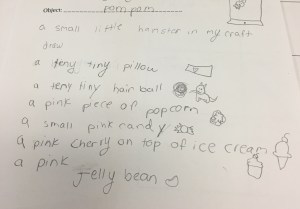 Object: pompom
a small little hamster in my craft
draw
a teny tiny pillow
a teny tiny hair ball
a pink piece of popcorn
a small pink candy
a pink cherry on top of ice cream
a pink
jelly bean